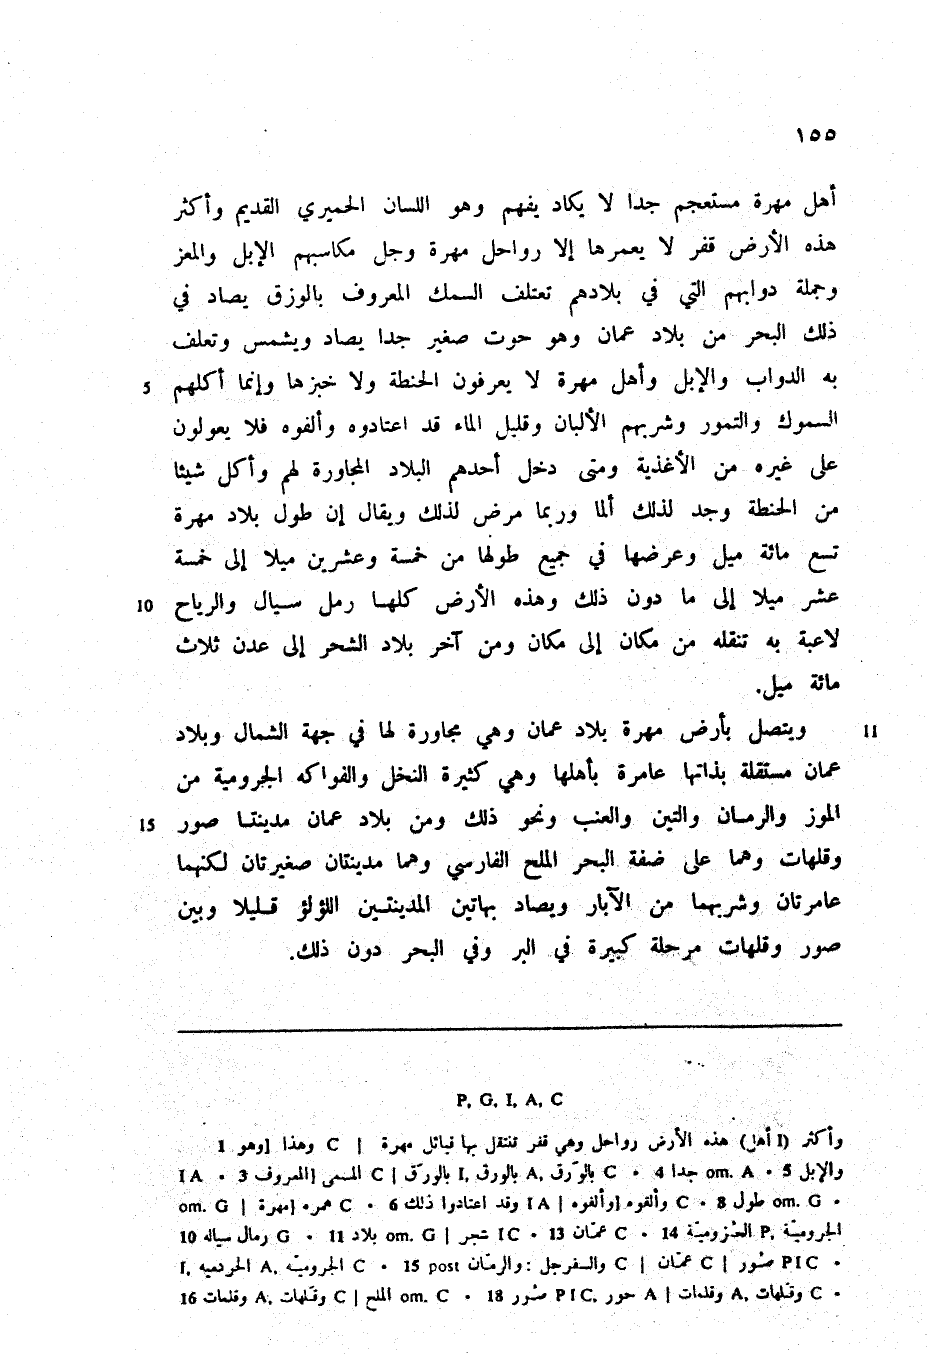 ١٥٥
أهل مهرة مستعجم جدا لا يكاد يفهم وهو اللسان الحميري القديم وأكثر
هذه الأرض قفر لا يعمرها إلا رواحل مهرة وجل مكاسبهم الإبل والمعز
وجملة دوابهم التي في بلادهم تعتلف السمك المعروف بالوزق يصاد في
ذلك البحر من بلاد عمان وهو حوت صغير جدا يصاد ويشمس وتعلف
به الدواب والإبل وأهل مهرة لا يعرفون الحنطة ولا خبزها وإنما أكلهم 5
السموك والتمور وشربهم الألبان وقليل الماء قد اعتادوه وألفوه فلا يعولون
على غيره من الأغذية ومتى دخل أحدهم البلاد المجاورة لهم وأكل شيئا
من الحنطة وجد لذلك ألما وربما مرض لذلك ويقال إن طول بلاد مهرة
تسع مائة ميل وعرضها في جميع طولها من خمسة وعشرين ميلا إلى خمسة
عشر ميلا إلى ما دون ذلك وهذه الأرض كلها رمل سيال والرياح 10
لاعبة به تنقله من مكان إلى مكان ومن آخر بلاد الشحر إلى عدن ثلاث
مائة ميل.
11 ويتصل بأرض مهرة بلاد عمان وهي مجاورة لها في جهة الشمال وبلاد
عمان مستقلة بذاتها عامرة بأهلها وهي كثيرة النخل والفواكه الجرومية من
الموز والرمان والتين والعنب ونحو ذلك ومن بلاد عمان مدينتا صور 15
وقلهات وهما على ضفة البحر الملح الفارسي وهما مدينتان صغيرتان لكنهما
عامرتان وشربهما من الآبار ويصاد بهاتين المدينتين اللؤلؤ قليلا وبين
صور وقلهات مرحلة كبيرة في البر وفي البحر دون ذلك.
P, G, I, A, C
1 وهو] وهذا C | وأكثر (I أهل) هذه الأرض رواحل وهي قفر تنتقل بها قبائل مهرة
I A · 3 المعروف] المسمى C | بالورق I, بالورق A, بالورق C · 4 جدا om. A · 5 والإبل
om. G | مهرة] C · 6 وقد اعتادوا ذلك I A | وألفوه] وألقوه C · 8 طول om. G ·
10 رمال سياله G · 11 بلاد om. G | شجر I C · 13 عمان C · 14 P, الجرومية
I, A, الجرومية C · 15 post والرمان: والسفرجل C | عمان C | صور P I C ·
16 وقلمات A, وقلهات C | الملح om. C · 18 صور P I C, حور A | وقلمات A, وقلهات C ·